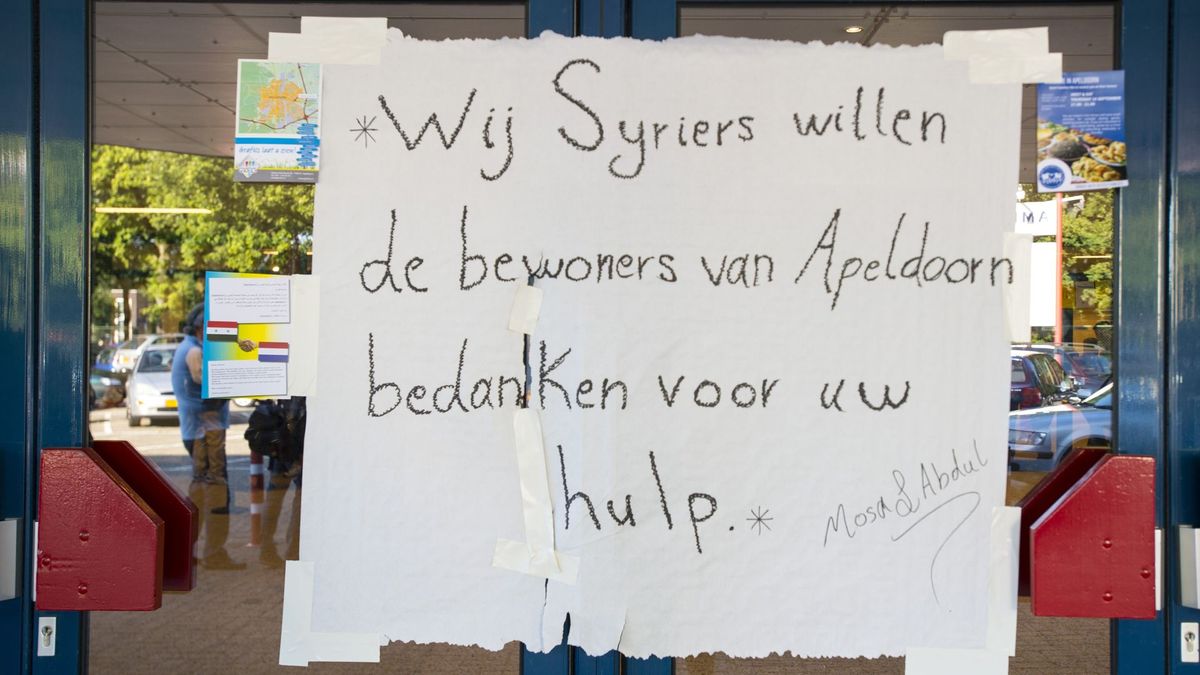 *Wij Syriers willen
de bewoners van Apeldoorn
bedanken voor uw
hulp.*
Mosa & Abdul
IN APELDOORN
MA